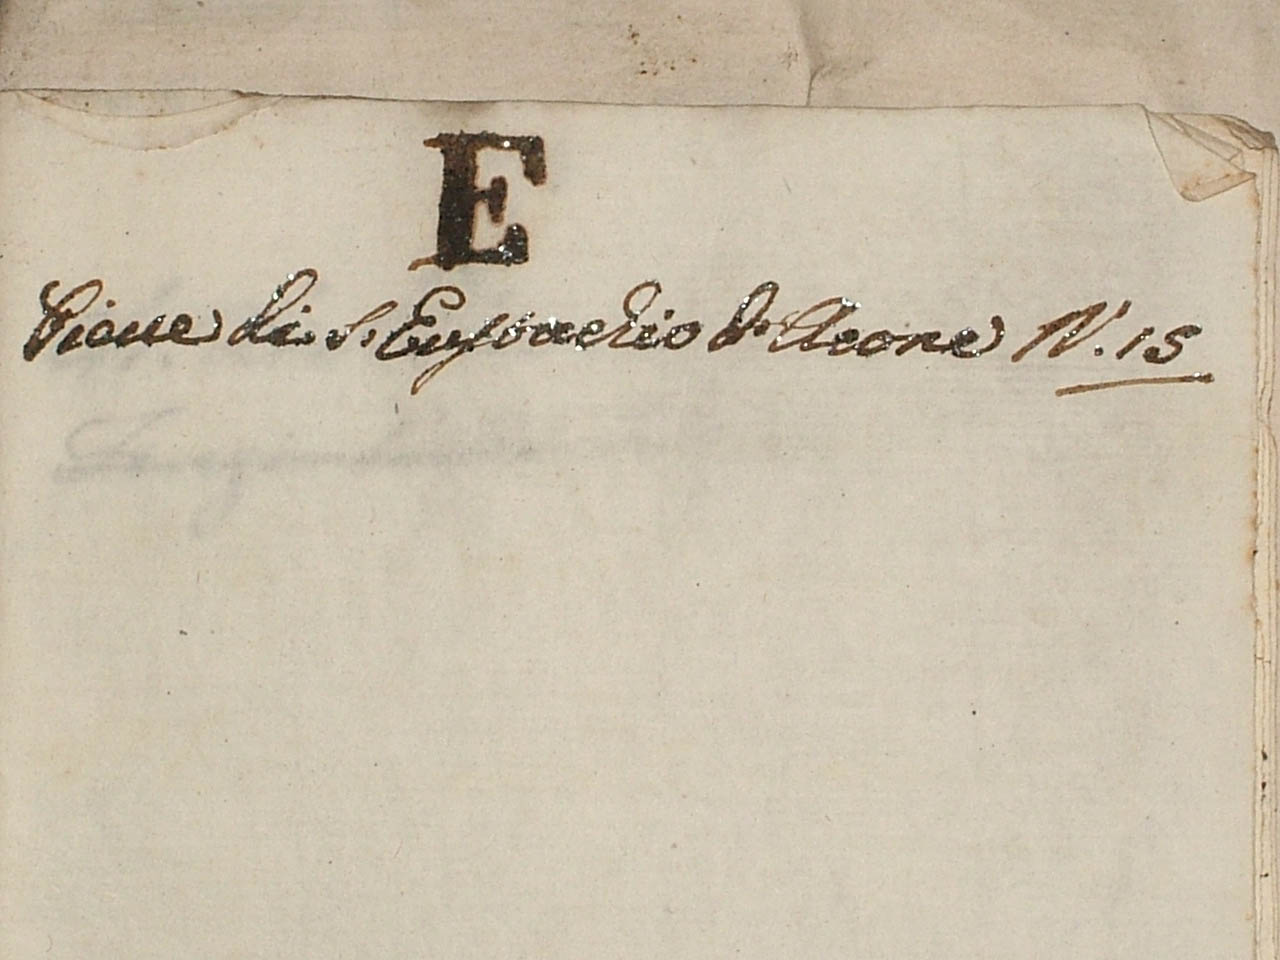 E
Pieve di S. Eustachio d'Acone N. 15